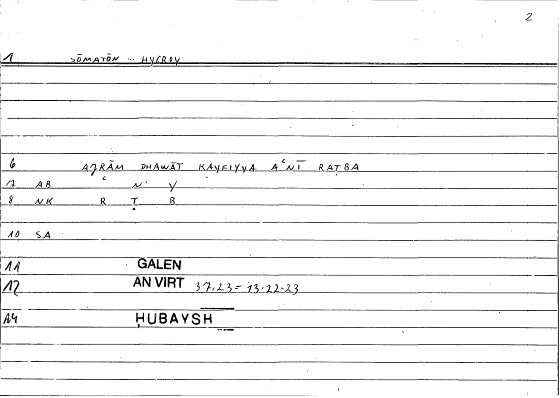 2
1 SŌMATŌN ... HYGROY
6 AǧRĀM DHAWĀT KAYFIYYA AʿNĪ RAṬBA
7 AB ʿ N Y
8 NK R Ṭ B
10 SA
11 GALEN
12 AN VIRT 37.23 = 13-22-23
14 ḤUBAYSH